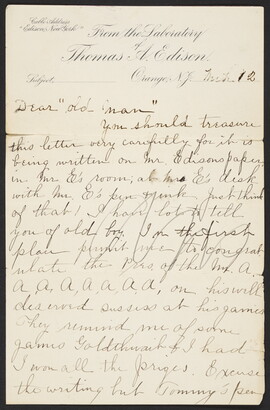 Cable Address
"Edison, New York"
From the Laboratory
of
Thomas A. Edison.
Subject
Orange, N.J.
12
Dear "old man"
You should treasure
this letter very carefully for it is
being written on Mr Edisons paper
in Mr E's room, at Mr E's desk
with Mr. E's pen & ink just think
of that! I have lots to tell
you of old boy. In the first
place permit me to congrat
ulate the Pres. of the M. A.
A, A, A, A, A, A, on his well
deserved sussess at his games
They remind me of some
games Goldthwait & I had
I won all the prizes. Excuse
the writing but Tommy's pen